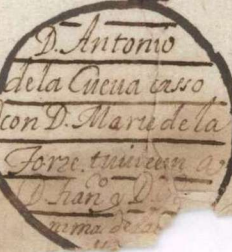 D. Antonio
de la Cueua casso
con D. Maria de la
Forze. tuuieron a
D. Fran.º y D.